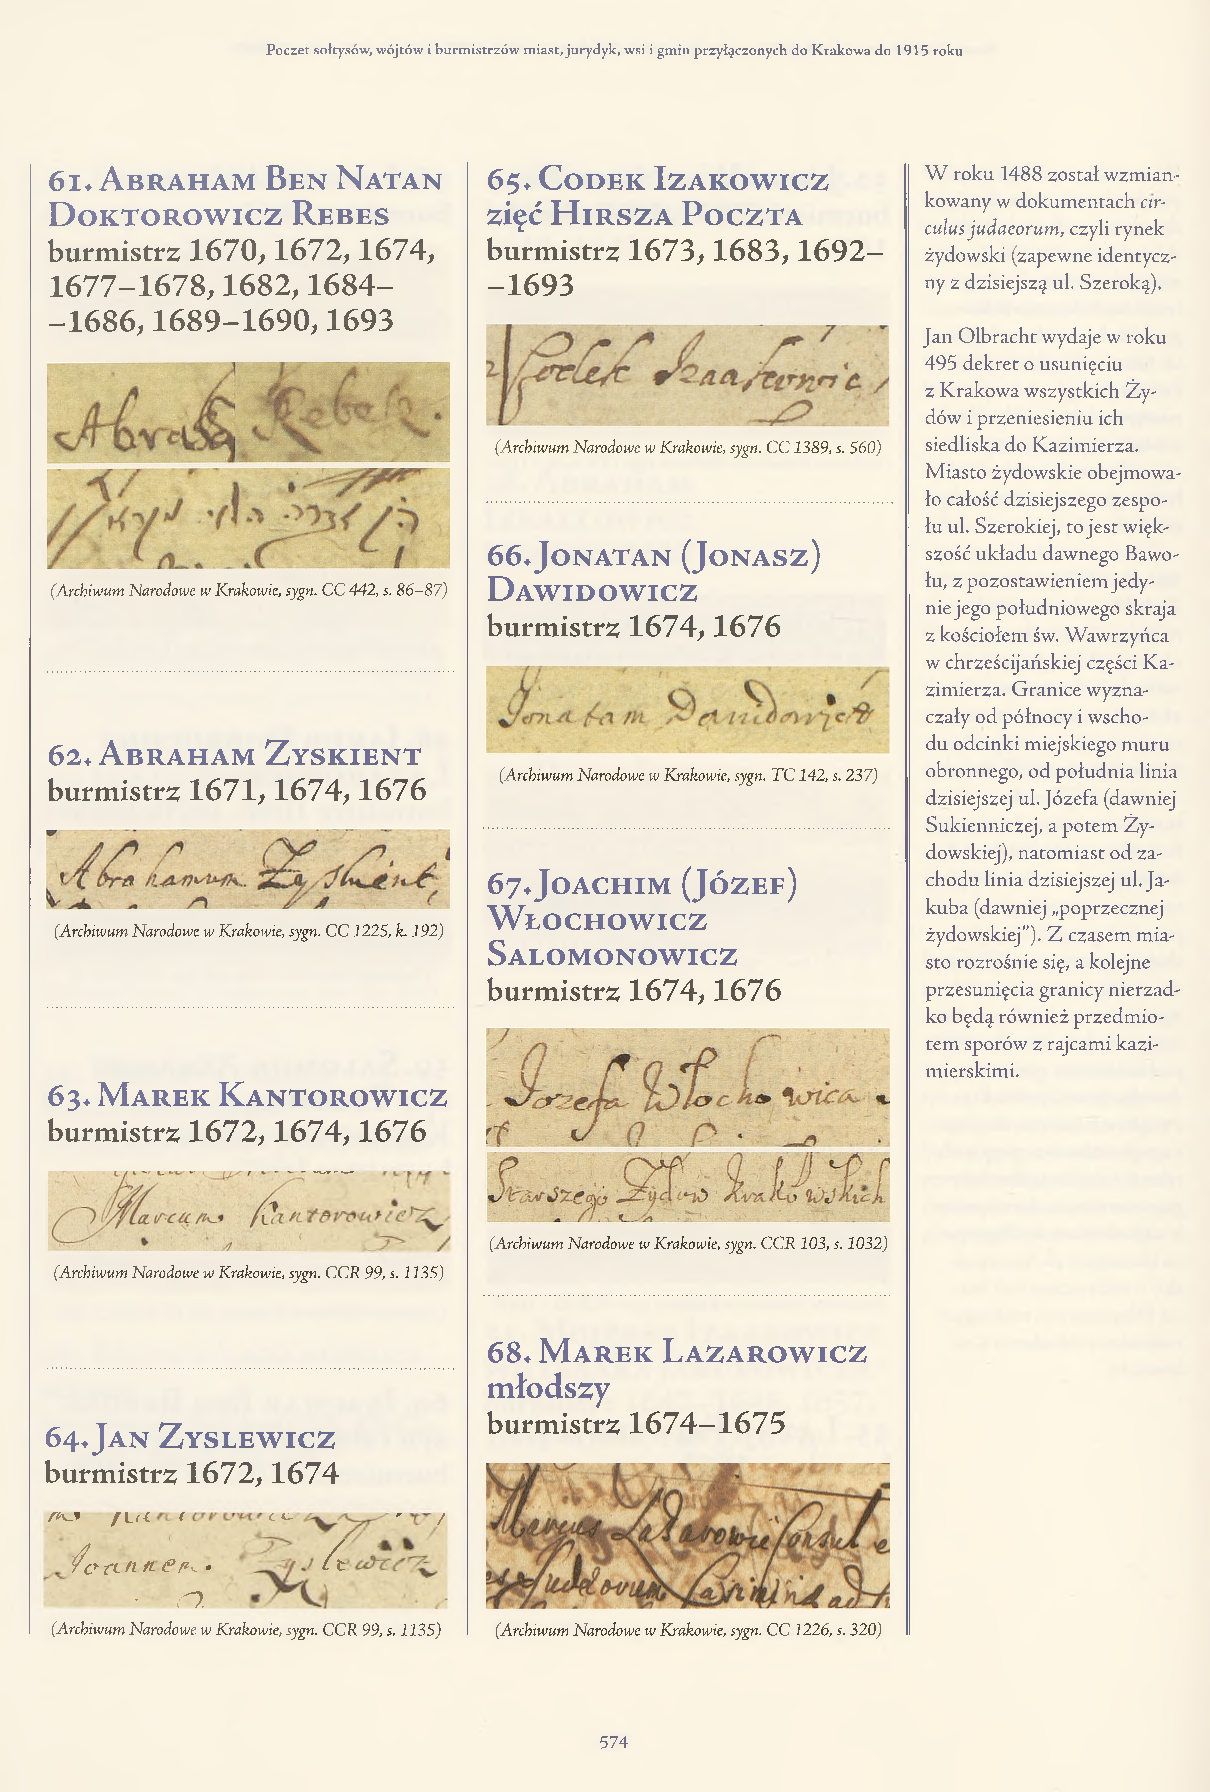 Poczet sołtysów, wójtów i burmistrzów miast, jurydyk, wsi i gmin przyłączonych do Krakowa do 1915 roku
61. Abraham Ben Natan
Doktorowicz Rebes
burmistrz 1670, 1672, 1674,
1677–1678, 1682, 1684–
–1686, 1689–1690, 1693
(Archiwum Narodowe w Krakowie, sygn. CC 442, s. 86–87)
62. Abraham Zyskient
burmistrz 1671, 1674, 1676
Abrahamum Zyskient
(Archiwum Narodowe w Krakowie, sygn. CC 1225, k. 192)
63. Marek Kantorowicz
burmistrz 1672, 1674, 1676
Marcum Kantorowicz
(Archiwum Narodowe w Krakowie, sygn. CCR 99, s. 1135)
64. Jan Zyslewicz
burmistrz 1672, 1674
Joannem Zyslewicz
(Archiwum Narodowe w Krakowie, sygn. CCR 99, s. 1135)
65. Codek Izakowicz
zięć Hirsza Poczta
burmistrz 1673, 1683, 1692–
–1693
(Archiwum Narodowe w Krakowie, sygn. CC 1389, s. 560)
66. Jonatan (Jonasz)
Dawidowicz
burmistrz 1674, 1676
Jonatam Dawidowicz
(Archiwum Narodowe w Krakowie, sygn. TC 142, s. 237)
67. Joachim (Józef)
Włochowicz
Salomonowicz
burmistrz 1674, 1676
Jozefa Włochowica
Starszego Zydow Krakowskich
(Archiwum Narodowe w Krakowie, sygn. CCR 103, s. 1032)
68. Marek Lazarowicz
młodszy
burmistrz 1674–1675
Marcus Lazarowic Consul
Judeorum
(Archiwum Narodowe w Krakowie, sygn. CC 1226, s. 320)
W roku 1488 został wzmian-
kowany w dokumentach cir-
culus judaeorum, czyli rynek
żydowski (zapewne identycz-
ny z dzisiejszą ul. Szeroką).
Jan Olbracht wydaje w roku
495 dekret o usunięciu
z Krakowa wszystkich Ży-
dów i przeniesieniu ich
siedliska do Kazimierza.
Miasto żydowskie obejmowa-
ło całość dzisiejszego zespo-
łu ul. Szerokiej, to jest więk-
szość układu dawnego Bawo-
łu, z pozostawieniem jedy-
nie jego południowego skraja
z kościołem św. Wawrzyńca
w chrześcijańskiej części Ka-
zimierza. Granice wyzna-
czały od północy i wscho-
du odcinki miejskiego muru
obronnego, od południa linia
dzisiejszej ul. Józefa (dawniej
Sukienniczej, a potem Ży-
dowskiej), natomiast od za-
chodu linia dzisiejszej ul. Ja-
kuba (dawniej „poprzecznej
żydowskiej"). Z czasem mia-
sto rozrośnie się, a kolejne
przesunięcia granicy nierzad-
ko będą również przedmio-
tem sporów z rajcami kazi-
mierskimi.
574